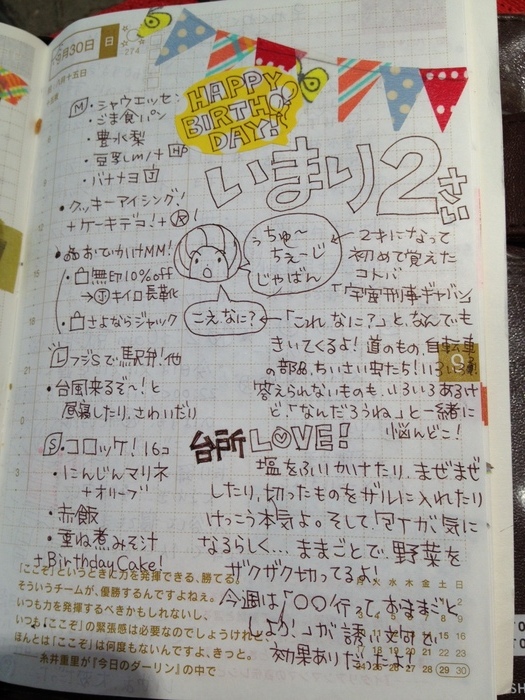 9月30日 日
274
HAPPY
BIRTH
DAY!
いまり2さい
M・シャウエッセン
・ごま食パン
・豊水梨
・バナナヨ
・クッキーアイシング!
+ケーキデコ!+
おでかけMM!
無印10%off
→キイロ長靴
さよならジャック
L フジSで駅弁!他
・台風来るぞ〜!と
昼寝したり、さわいだり
S・コロッケ!16コ
・にんじんマリネ
+オリーブ
・赤飯
・重ね煮みそ汁
+BirthdayCake!
うちゅ〜
ちぇーじ
じゃばん
←2才になって
初めて覚えた
コトバ
「宇宙刑事ギャバン」
こえなに?
←「これなに?」と、なんでも
きいてくるよ!道のもの、自転車
の部品、ちいさい虫たち!いろいろ!
答えられないものも、いろいろあるけ
ど、「なんだろうね」と一緒に
悩んどこ!
台所LOVE!
塩をふりかけたり、まぜまぜ
したり、切ったものをザルに入れたり
けっこう本気よ。そして「包丁」が気に
なるらしく…ままごとで、野菜を
ザクザク切ってるよ!
今週は「〇〇行って、おままごと
しよう!」が誘い文句で、
効果ありだったよ!
「ここぞ」というときに力を発揮できる、勝てる。
そういうチームが、優勝するんですよねえ。
いつも力を発揮するべきかもしれないし、
いつも「ここぞ」の緊張感は必要なのでしょうけれど、
ほんとは「ここぞ」は何度もないんですよ、きっと。
──糸井重里が『今日のダーリン』の中で
火 水 木 金 土 日